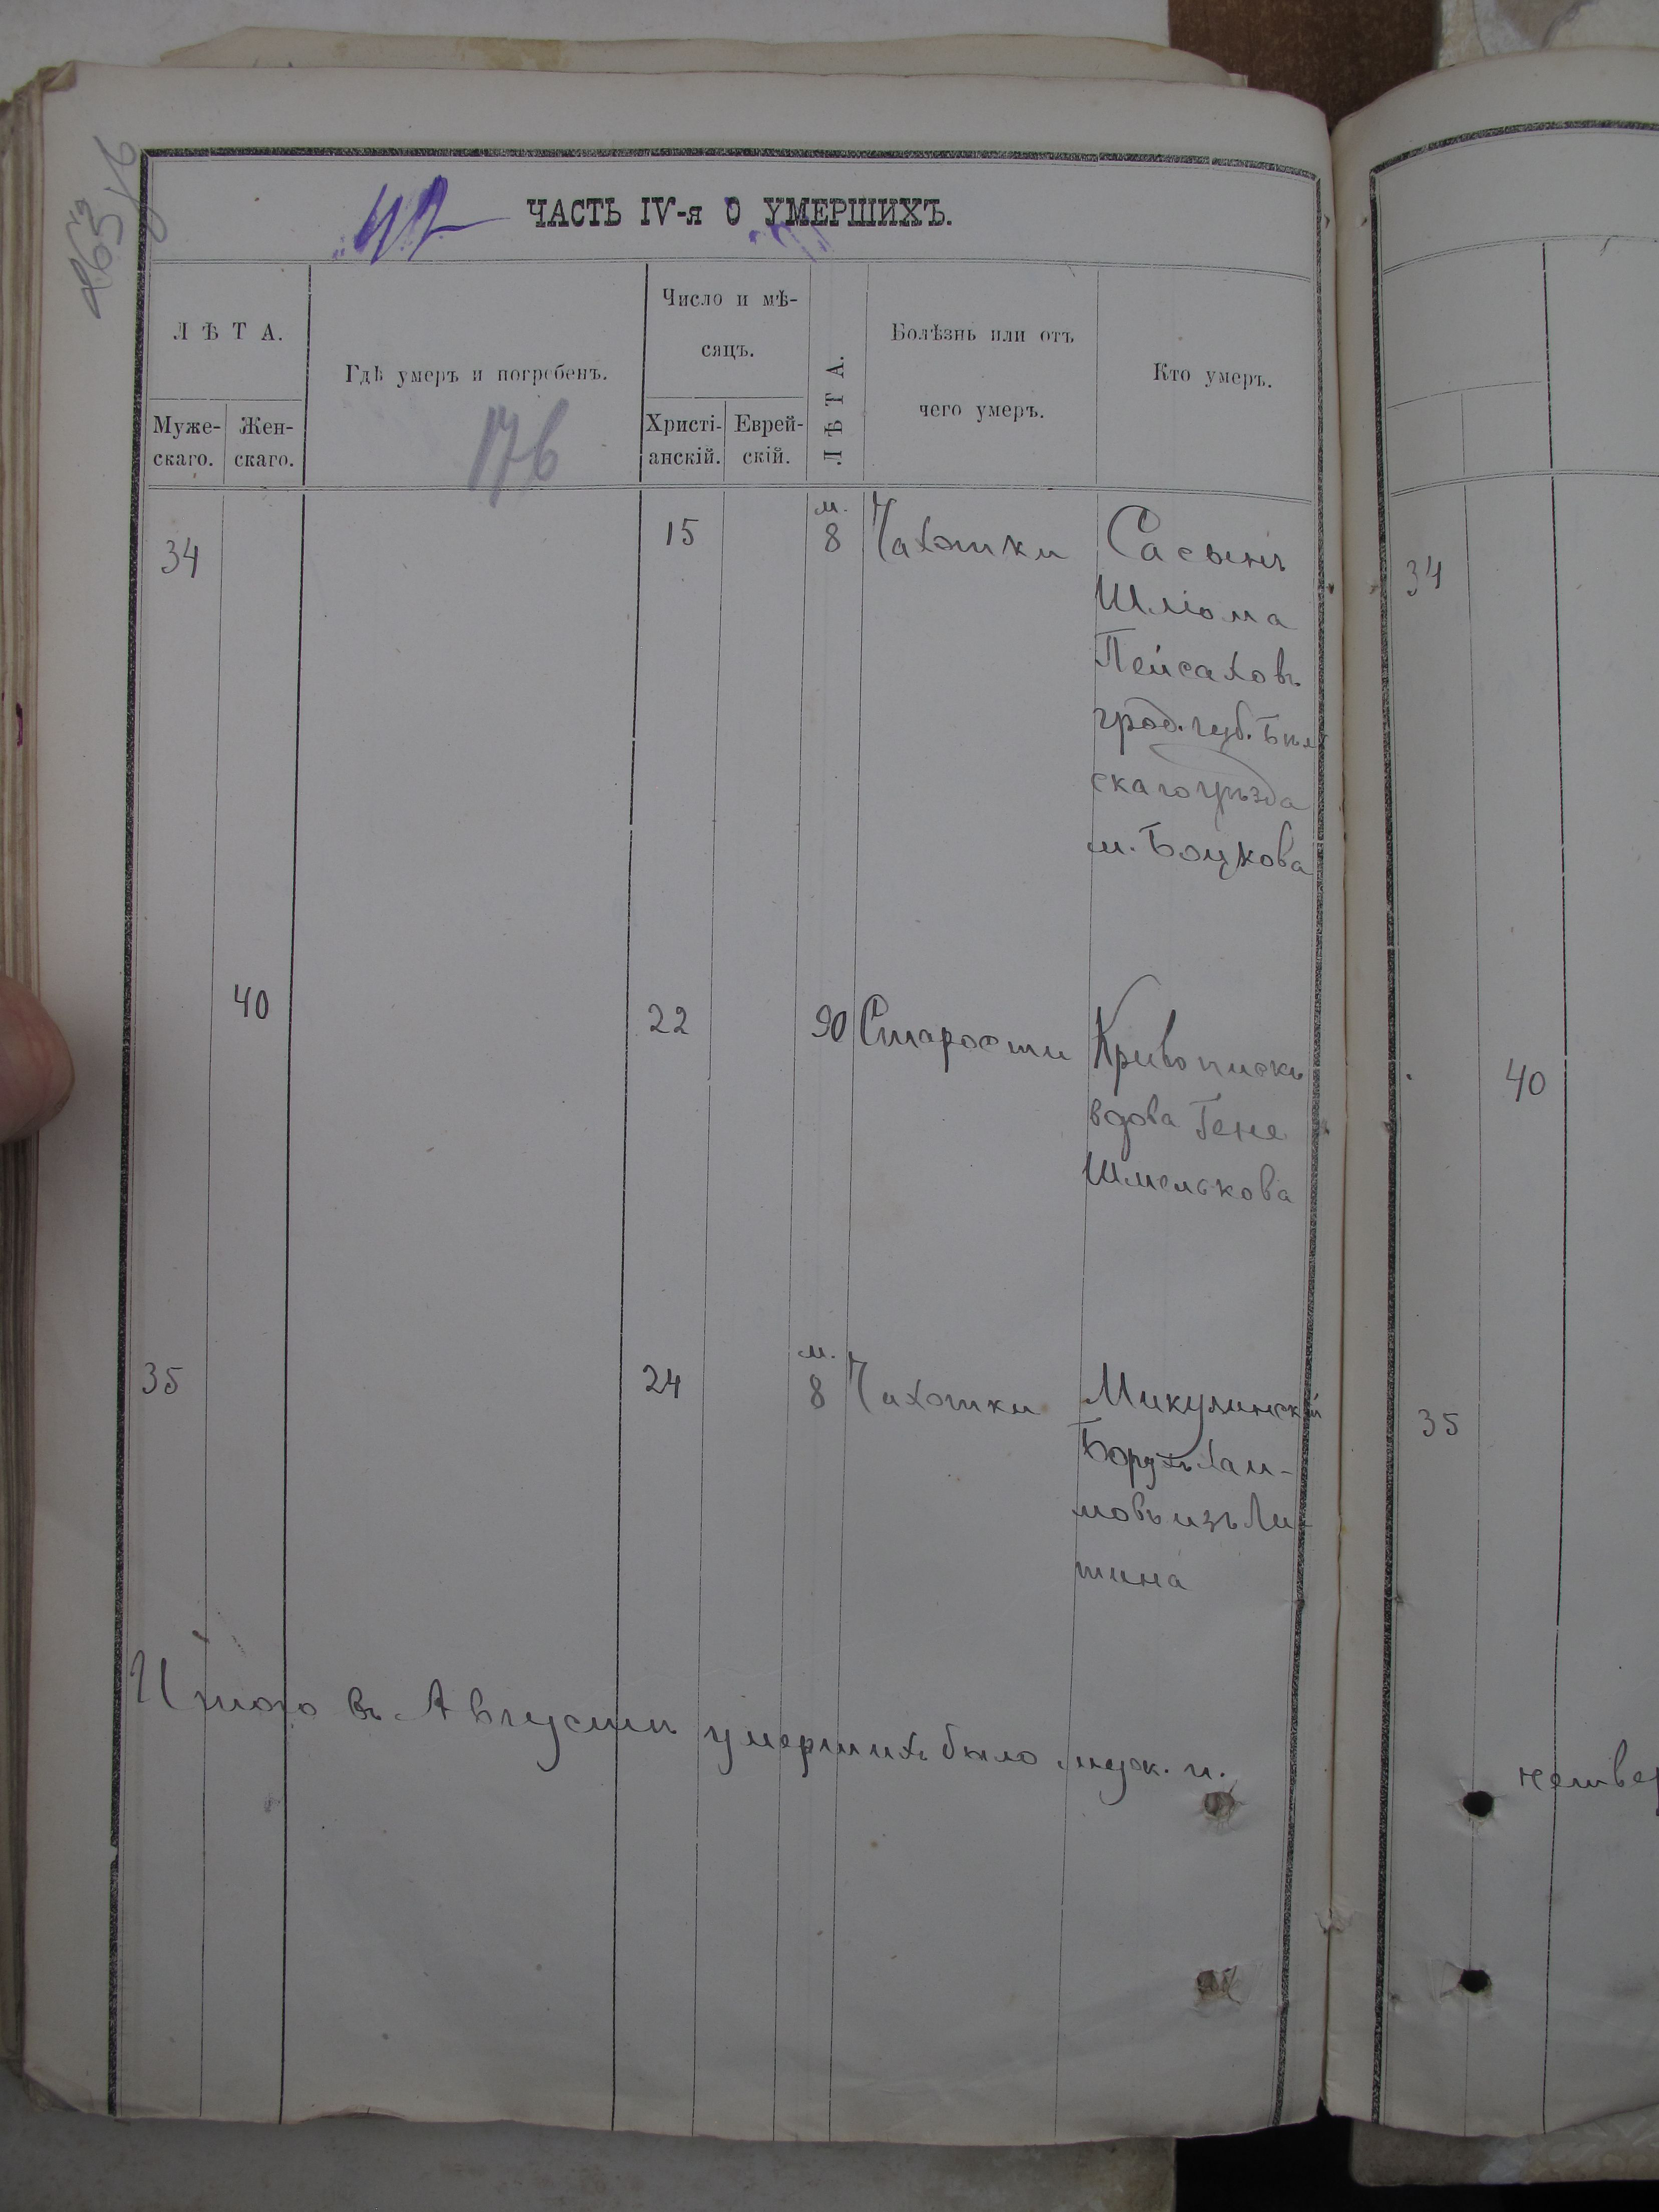 42
ЧАСТЬ IV-я О УМЕРШИХЪ.
ЛѢТА.
Муже-
скаго.
Жен-
скаго.
Гдѣ умеръ и погребенъ.
176
Число и мѣ-
сяцъ.
Христі-
анскій.
Еврей-
скій.
ЛѢТА.
Болѣзнь или отъ
чего умеръ.
Кто умеръ.
34
15
м.
8
Чахотки
Сасынъ
Шліома
Пейсаховъ
грод. губ. Бѣль
скаго уѣзда
м. Боцкова
34
40
22
90
Старости
Кривопискъ
вдова Гене
Шмелькова
40
35
24
м.
8
Чахотки
Микулинскій
Борухъ Хаи-
мовъ изъ Ли-
тина
35
Итого въ Августѣ умершихъ было муж. п.
четвер